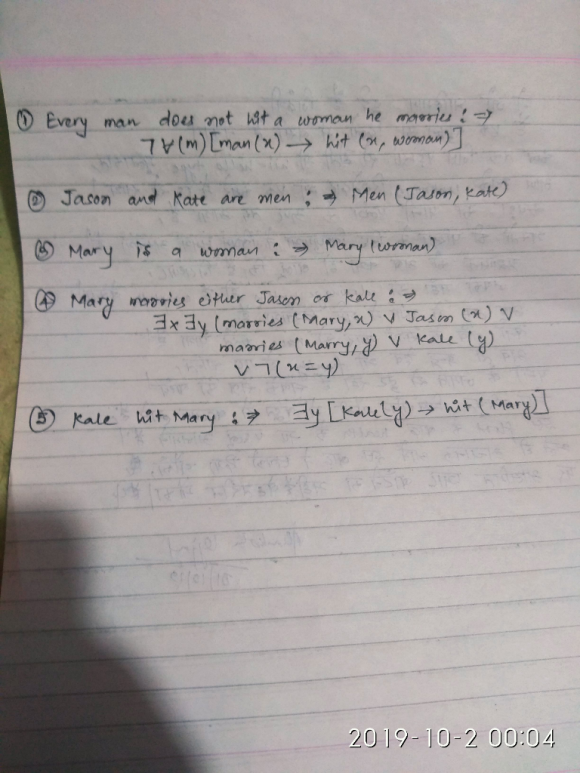 ① Every man does not hit a woman he marries : ⇒
¬∀(m)[man(x) → hit (x, woman)]
② Jason and Kate are men : ⇒ Men (Jason, Kate)
③ Mary is a woman : ⇒ Mary (woman)
④ Mary marries either Jason or Kale : ⇒
∃x ∃y (marries (Mary, x) ∨ Jason (x) ∨
marries (Marry, y) ∨ Kale (y)
∨ ¬(x = y)
⑤ Kale hit Mary : ⇒ ∃y [Kale(y) → hit (Mary)]
2019-10-2 00:04